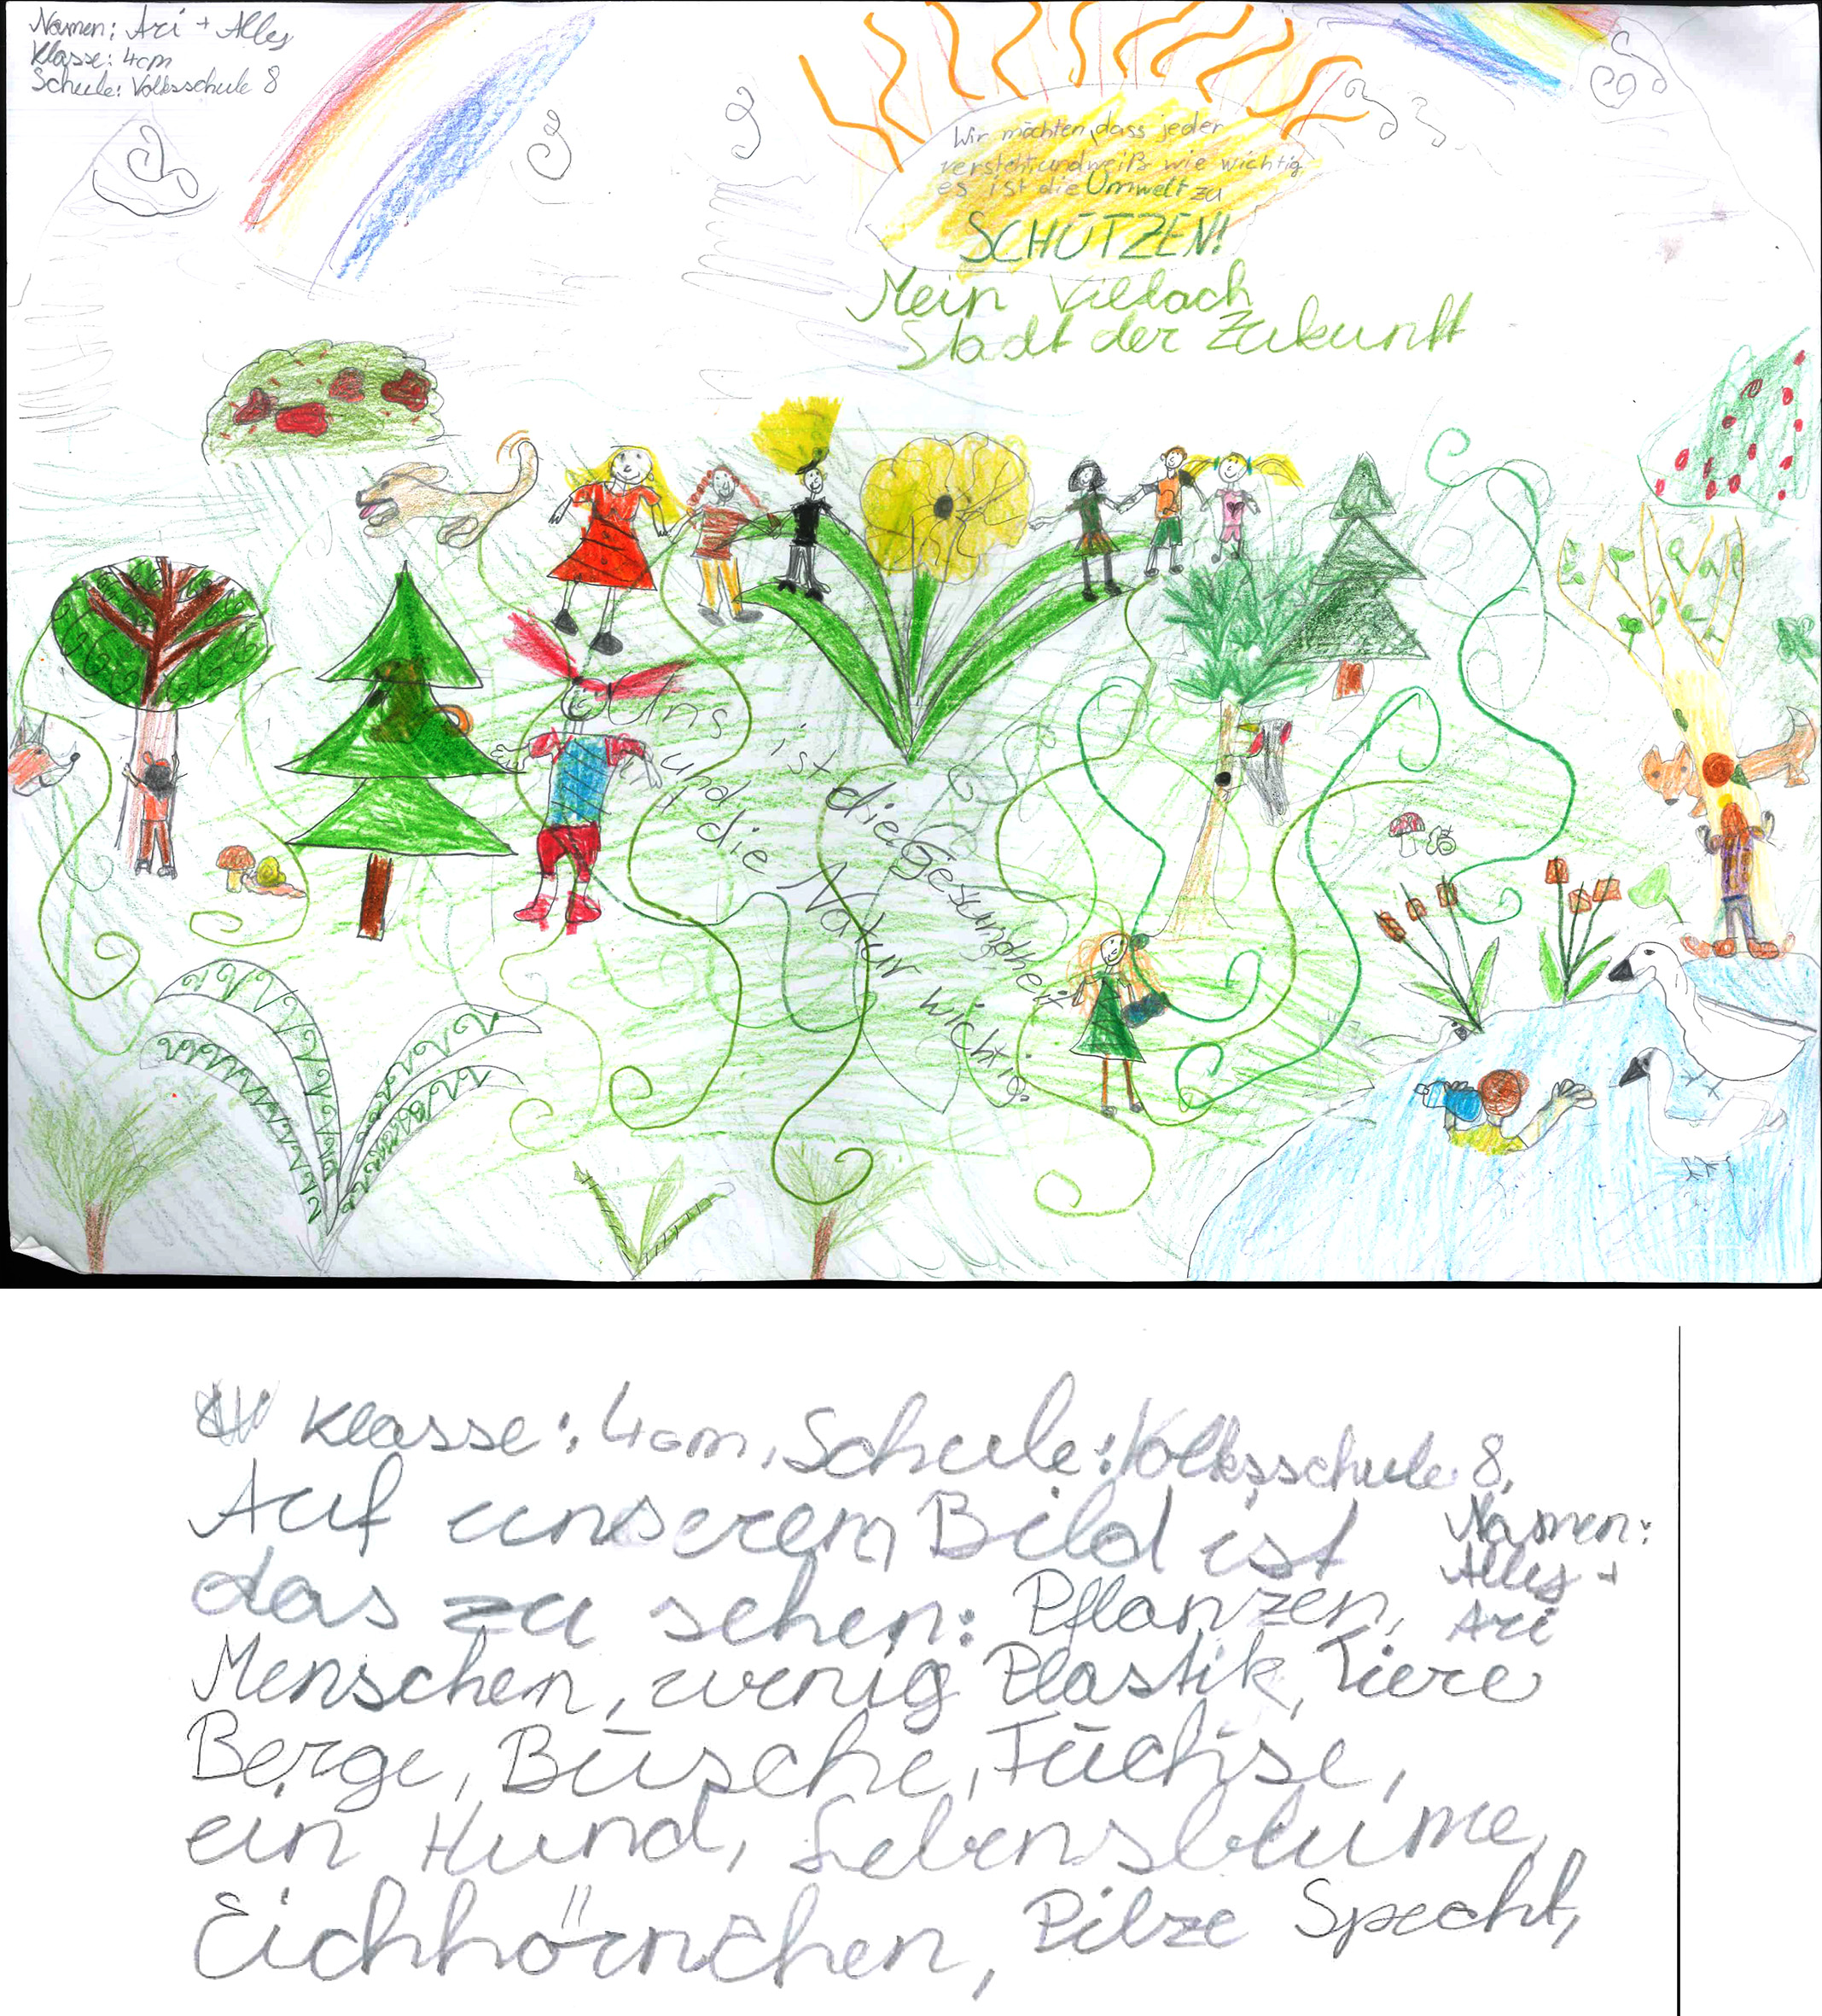 Namen: Ari + Alley
Klasse: 4cm
Schule: Volksschule 8
Wir möchten, dass jeder
versteht und weiß wie wichtig
es ist die Umwelt zu
SCHÜTZEN!
Mein Villach
Stadt der Zukunft
Uns ist die Gesundheit
und die Natur wichtig
Klasse: 4cm, Schule: Volksschule 8,
Auf unserem Bild ist
das zu sehen: Pflanzen,
Namen:
Alley +
Ari
Menschen, wenig Plastik, Tiere
Berge, Büsche, Füchse,
ein Hund, Lebensblume,
Eichhörnchen, Pilze Specht,